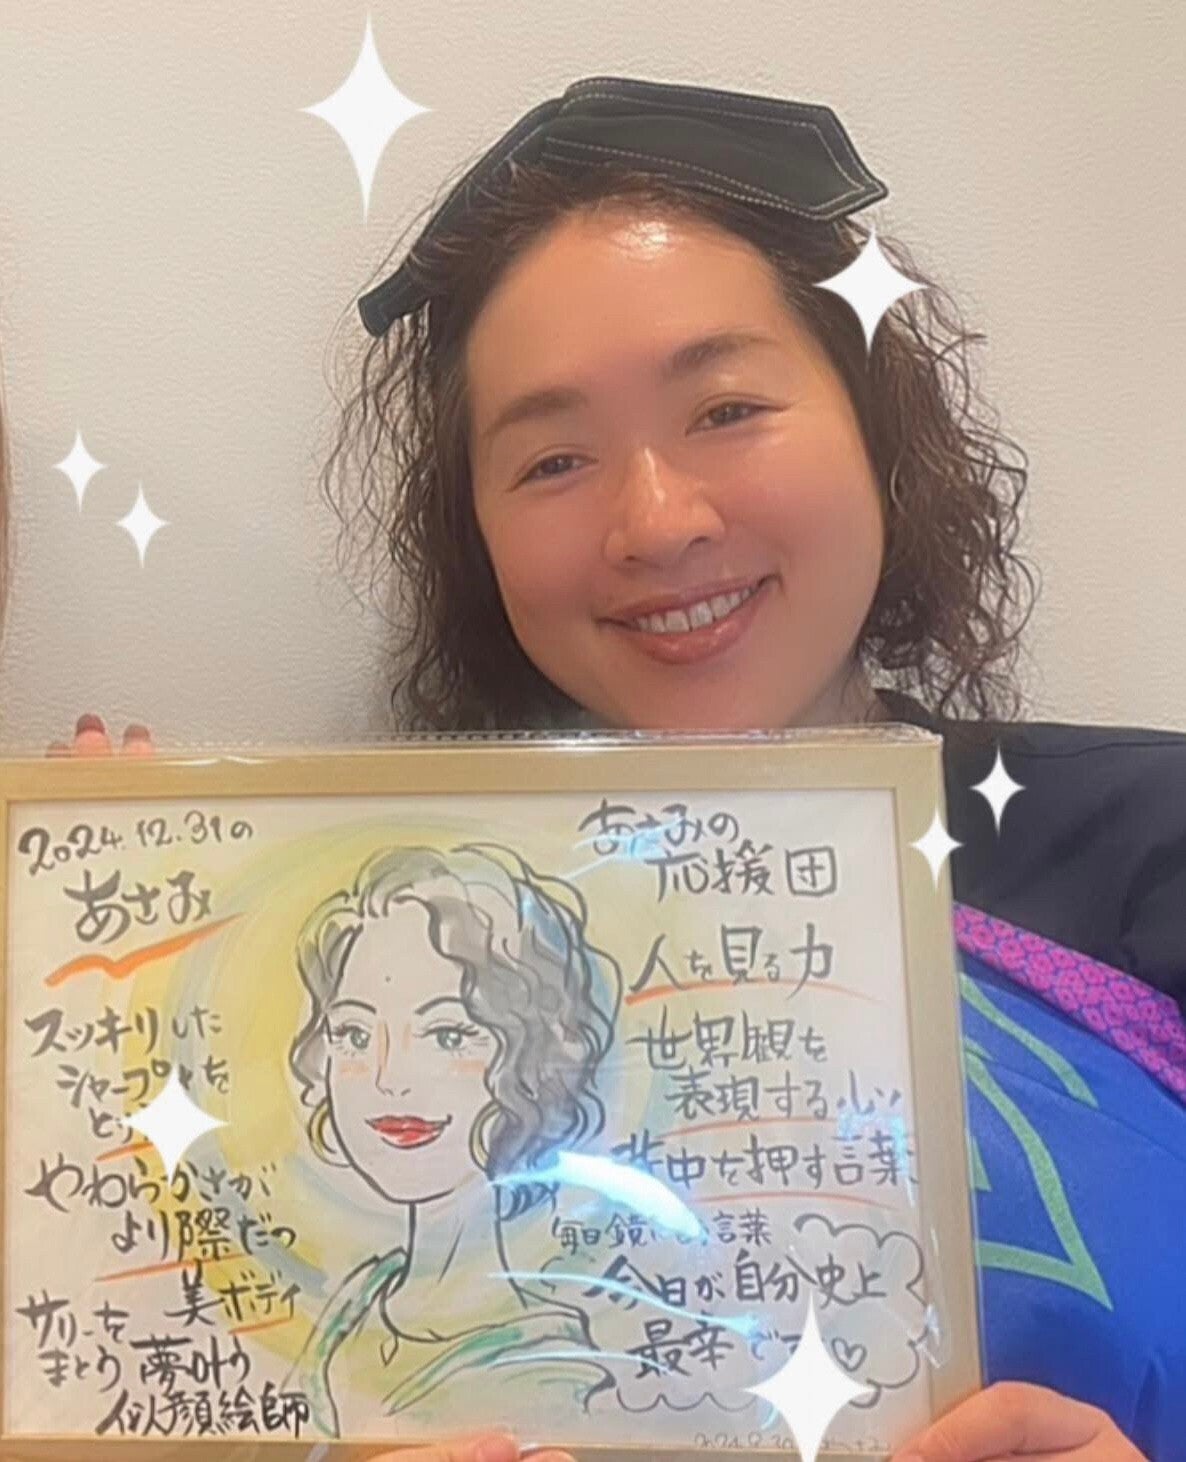 2024.12.31の
あさみ
スッキリした
シャープさを
と
やわらかさが
より際だつ
美ボディ
サリーを
まとう 夢叶う
似顔絵師
あさみの
応援団
人を見る力
世界観を
表現する心
背中を押す言葉
毎日鏡 言葉
今日が自分史上
最幸です♡